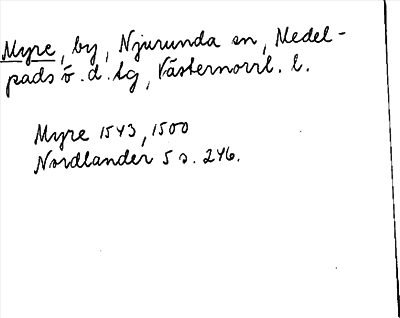 Myre, by, Njurunda sn, Medel-
pads ö. d. lg, Västernorrl. l.
Myre 1543, 1500
Nordlander 5 s. 246.